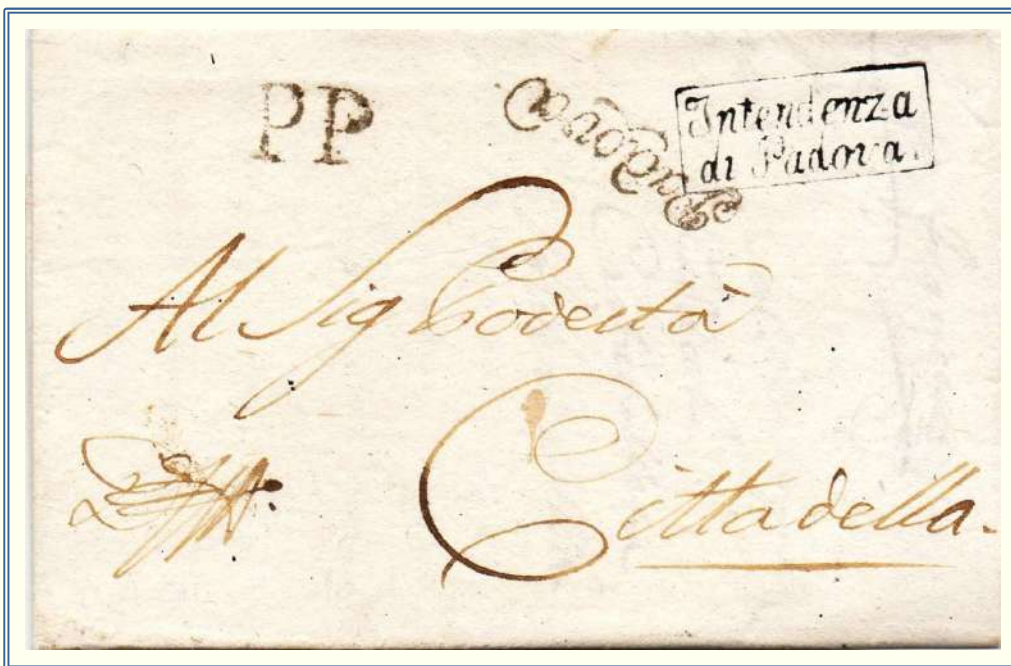 PP
Intendenza
di Padova.
Al Sig Podestà
Cittadella.